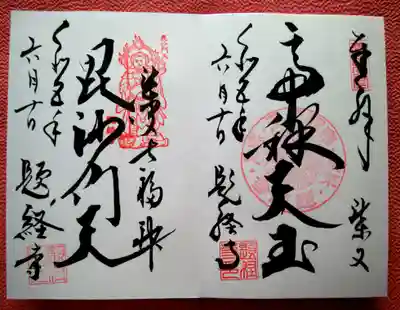 奉拝 柴又
帝釈天王
令和五年
六月十日 題経寺
柴又七福神
毘沙門天
令和五年
六月十日 題経寺